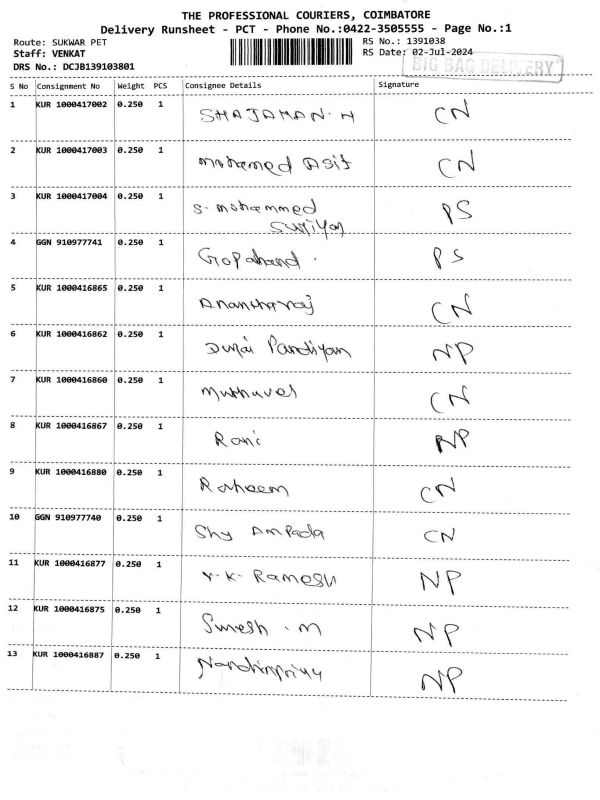 THE PROFESSIONAL COURIERS, COIMBATORE
Delivery Runsheet - PCT - Phone No.:0422-3505555 - Page No.:1
Route: SUKWAR PET RS No.: 1391038
Staff: VENKAT RS Date: 02-Jul-2024
DRS No.: DCJB139103801 BIG BAG DELIVERY
S No Consignment No Weight PCS Consignee Details Signature
1 KUR 1000417002 0.250 1 SHAJAHAN. H CN
2 KUR 1000417003 0.250 1 Mohamed Asif CN
3 KUR 1000417004 0.250 1 S. Mohammed PS
4 GGN 910977741 0.250 1 PS
5 KUR 1000416865 0.250 1 Anantharaj CN
6 KUR 1000416862 0.250 1 Durai Pandiyan NP
7 KUR 1000416860 0.250 1 Muthuvel CN
8 KUR 1000416867 0.250 1 Rani NP
9 KUR 1000416880 0.250 1 Raheem CN
10 GGN 910977740 0.250 1 Shy Ampada CN
11 KUR 1000416877 0.250 1 V. K. Ramesh NP
12 KUR 1000416875 0.250 1 Suresh . M NP
13 KUR 1000416887 0.250 1 NP